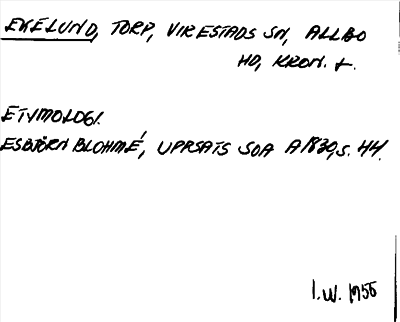 EKELUND, TORP, VIRESTADS SN, ALLBO
HD, KRON. L.
ETYMOLOGI.
ESBJÖRN BLOHMÉ, UPPSATS SOA A1830, S. 44.
I.W. 1955